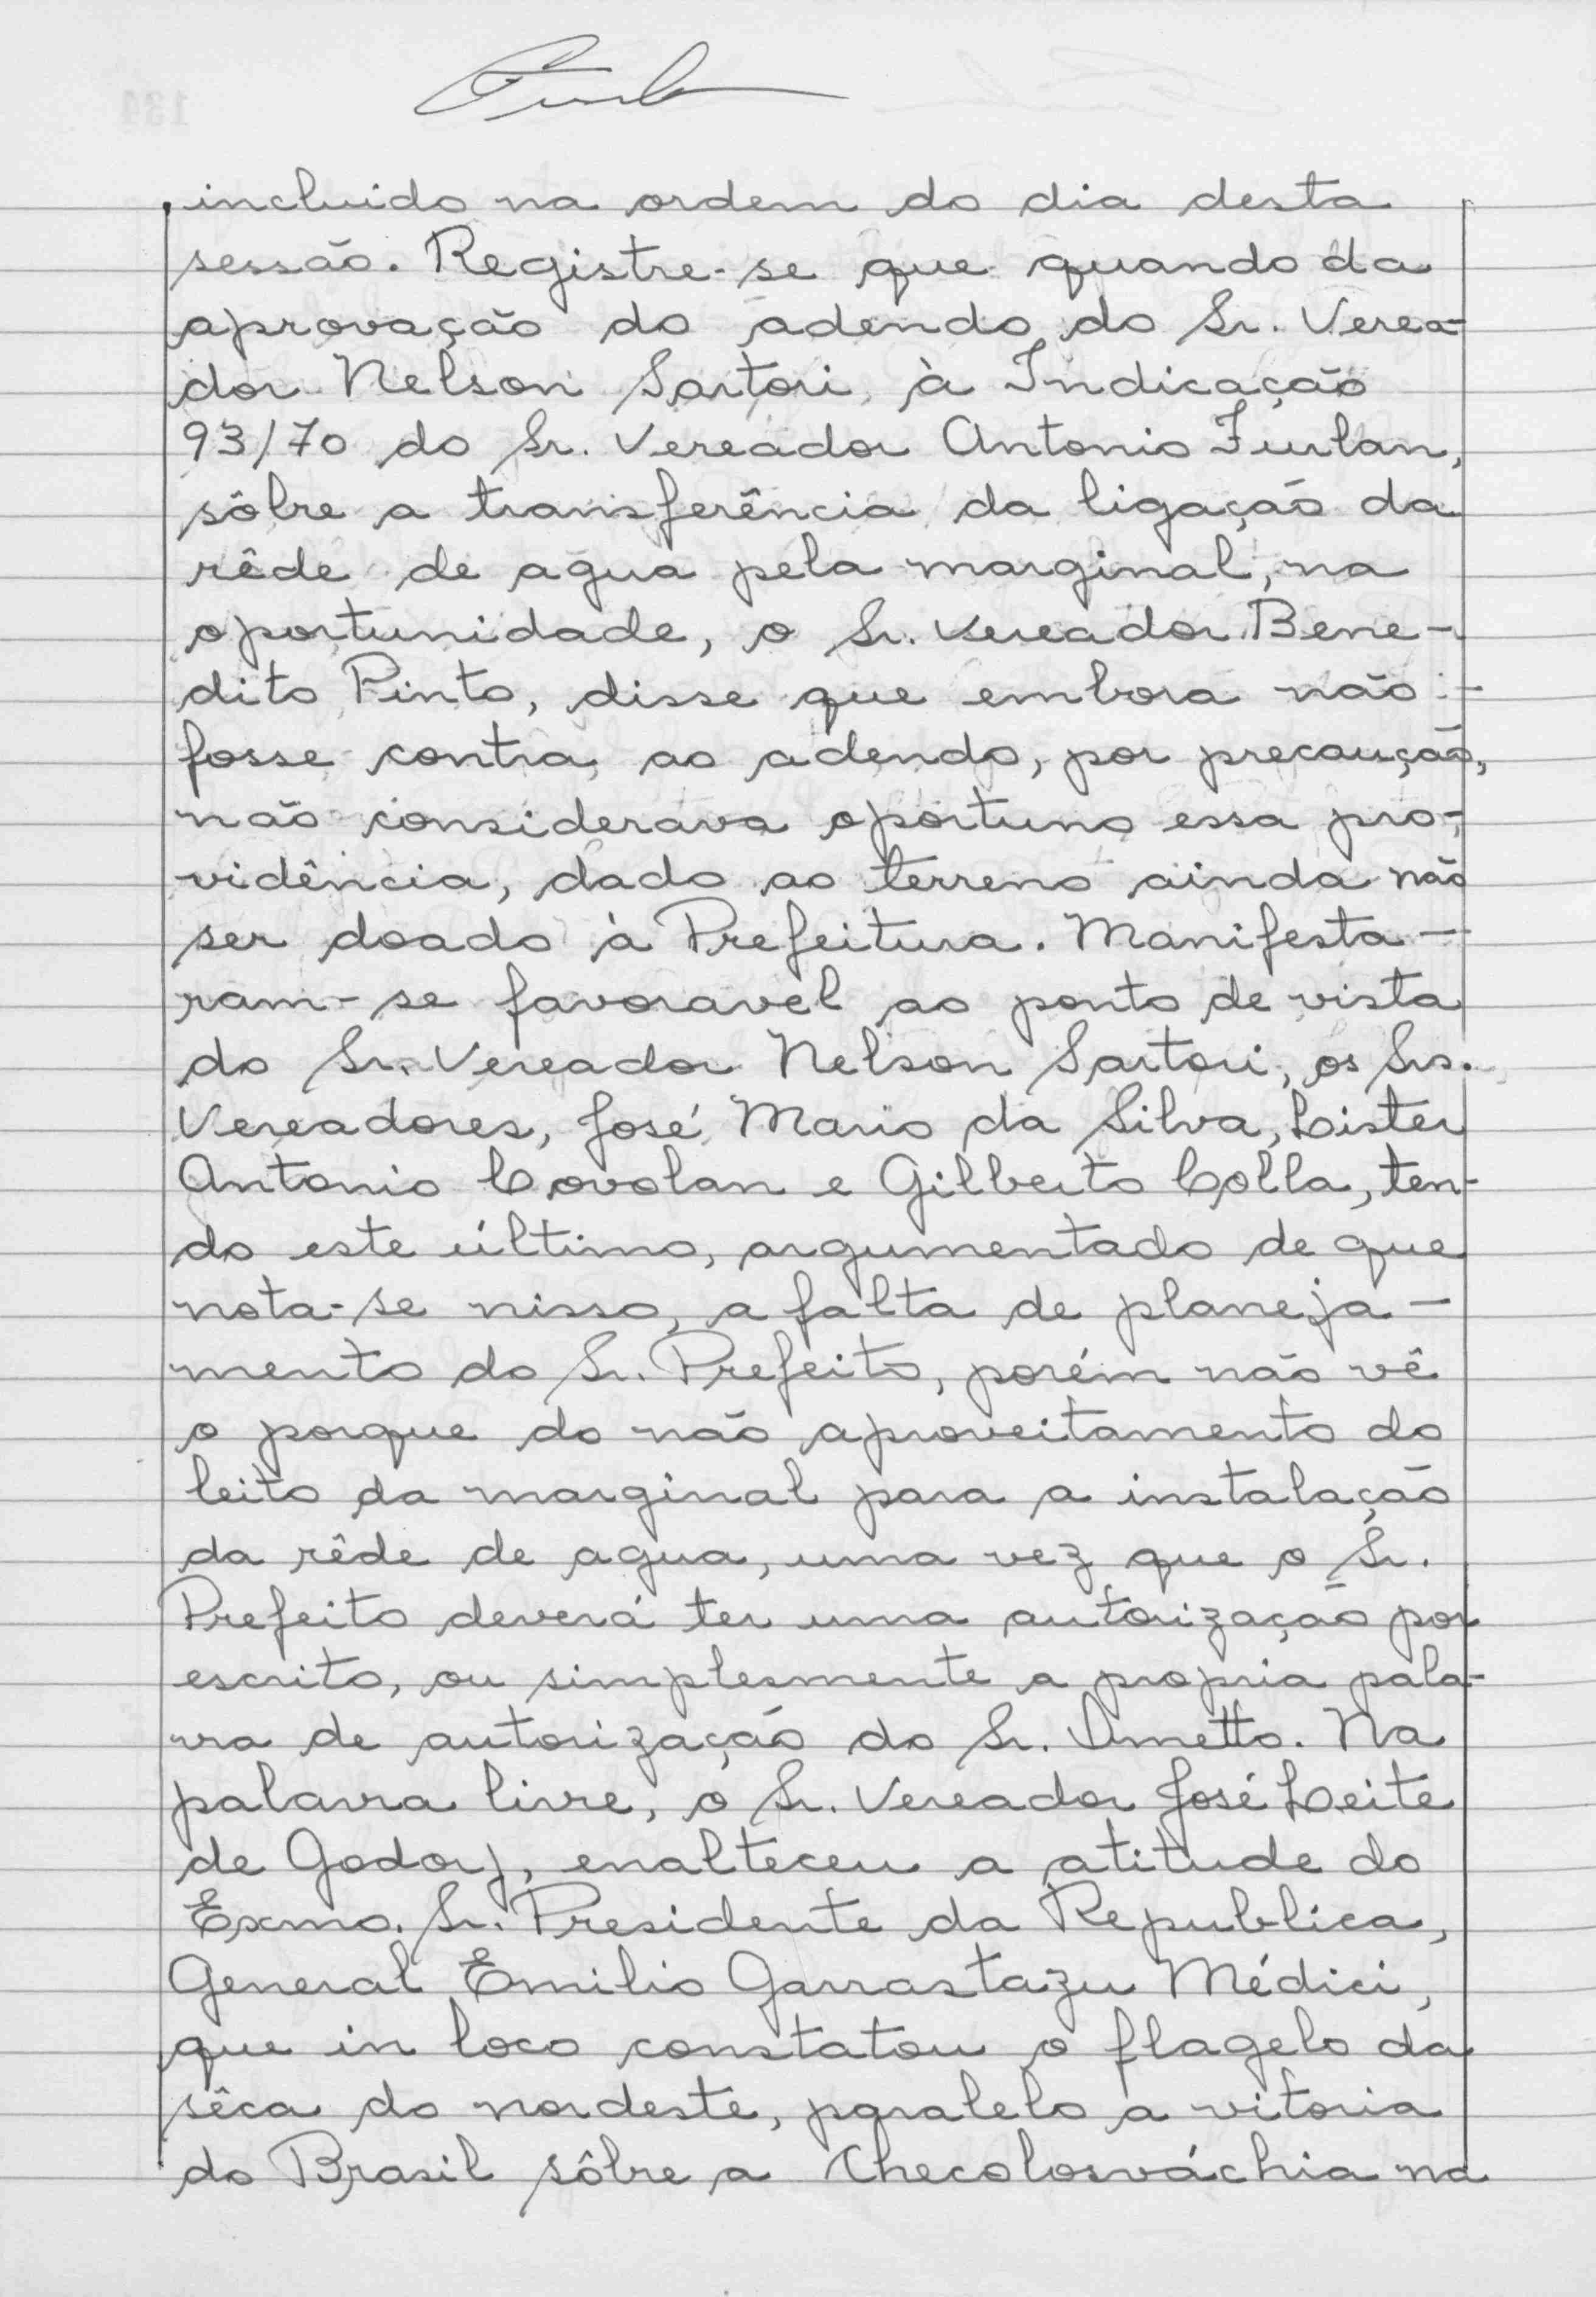 incluido na ordem do dia desta
sessão. Registre-se que quando da
aprovação do adendo do Sr. Verea-
dor Nelson Sartori, à Indicação
93/70 do Sr. Vereador Antonio Furlan,
sôbre a transferência da ligação da
rêde de agua pela marginal, na
oportunidade, o Sr. Vereador Bene-
dito Pinto, disse que embora não -
fosse contra ao adendo, por precaução,
não considerava oportuno essa pro-
vidência, dado ao terreno ainda não
ser doado à Prefeitura. Manifesta-
ram-se favoravel ao ponto de vista
do Sr. Vereador Nelson Sartori, os Srs.
Vereadores, José Mario da Silva, Lister
Antonio Covolan e Gilberto Colla, ten-
do este último, argumentado de que
nota-se nisso, a falta de planeja-
mento do Sr. Prefeito, porém não vê
o porque do não aproveitamento do
leito da marginal para a instalação
da rêde de agua, uma vez que o Sr.
Prefeito deverá ter uma autorização por
escrito, ou simplesmente a propria pala-
vra de autorização do Sr. Ometto. Na
palavra livre, o Sr. Vereador José Leite
de Godoy, enalteceu a atitude do
Exmo. Sr. Presidente da Republica,
General Emilio Garrastazu Médici,
que in loco constatou o flagelo da
sêca do nordeste, paralelo a vitoria
do Brasil sôbre a Checolosváchia na